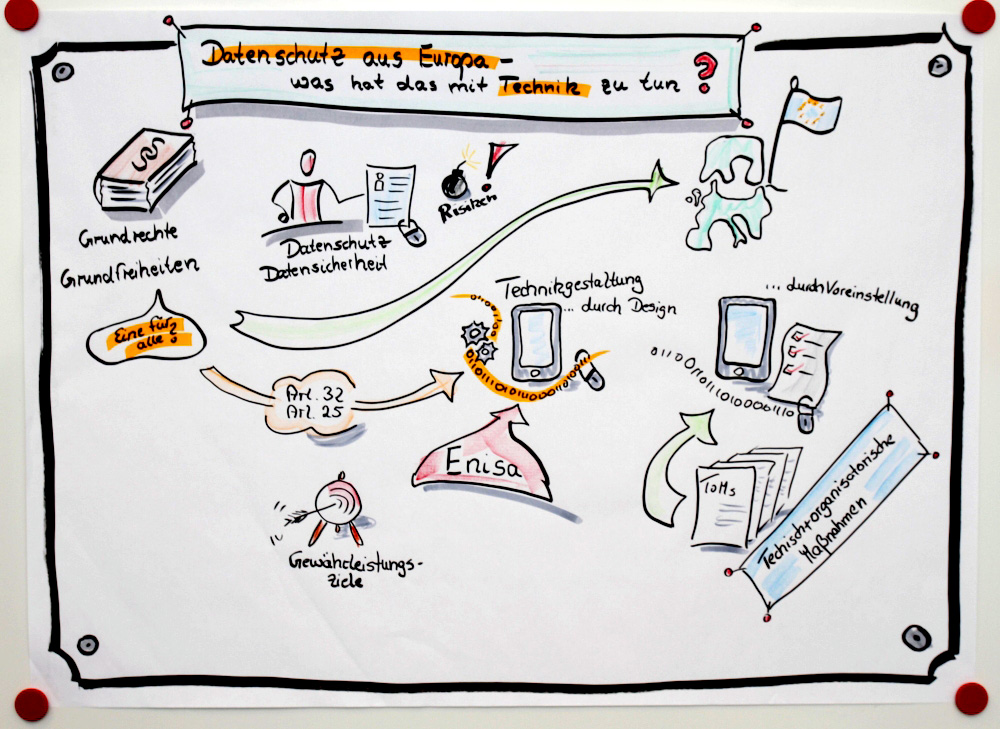 Datenschutz aus Europa -
was hat das mit Technik zu tun ?
§§
Grundrechte
Grundfreiheiten
Eine für
alle?
Datenschutz
Datensicherheit
!
Art. 32
Art. 25
Technikgestaltung
... durch Design
011101010001110
Enisa
Gewährleistungs-
ziele
... durch Voreinstellung
TOMs
Techisch+organisatorische
Maßnahmen